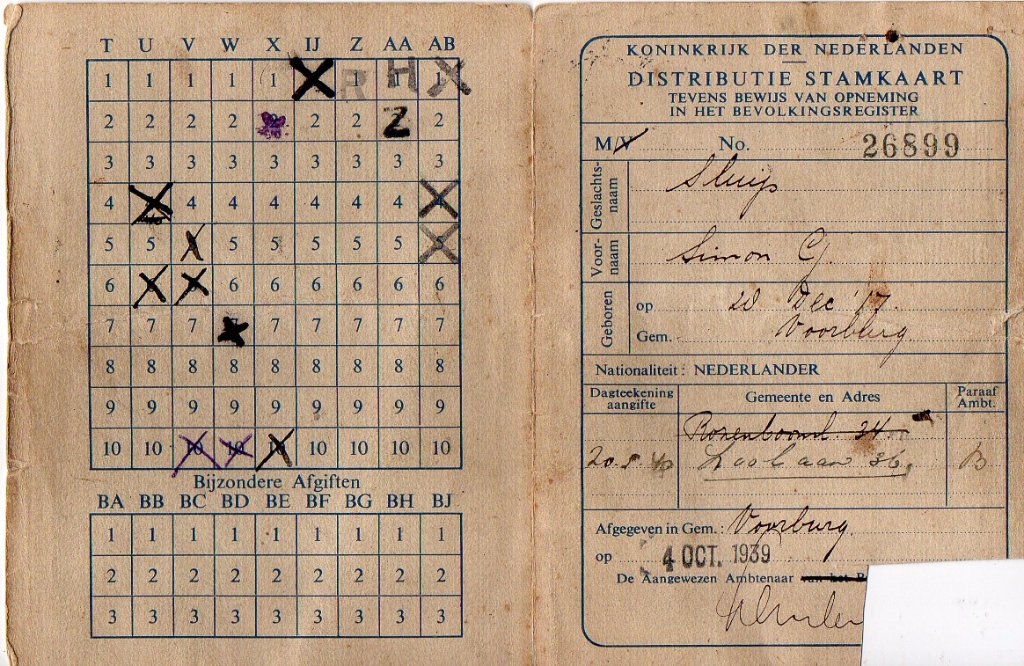 T U V W X IJ Z AA AB
1 1 1 1 1 R H 1
2 2 2 2 2 2 Z 2
3 3 3 3 3 3 3 3 3
4 4 4 4 4 4 4 4
5 5 5 5 5 5 5 5
6 6 6 6 6 6 6 6
7 7 7 7 7 7 7 7 7
8 8 8 8 8 8 8 8 8
9 9 9 9 9 9 9 9 9
10 10 10 10 10 10 10 10 10
Bijzondere Afgiften
BA BB BC BD BE BF BG BH BJ
1 1 1 1 1 1 1 1 1
2 2 2 2 2 2 2 2 2
3 3 3 3 3 3 3 3 3
KONINKRIJK DER NEDERLANDEN
DISTRIBUTIE STAMKAART
TEVENS BEWIJS VAN OPNEMING
IN HET BEVOLKINGSREGISTER
M/V No. 26899
Geslachts-
naam
Sluijs
Voor-
naam
Simon C.
Geboren
op 28 Dec '17.
Gem. Voorburg
Nationaliteit: NEDERLANDER
Dagteekening
aangifte
Gemeente en Adres
Paraaf
Ambt.
Rozenbooml. 34
20.5.40 Loolaan 36, B
Afgegeven in Gem.: Voorburg
op 4 OCT. 1939
De Aangewezen Ambtenaar van het B